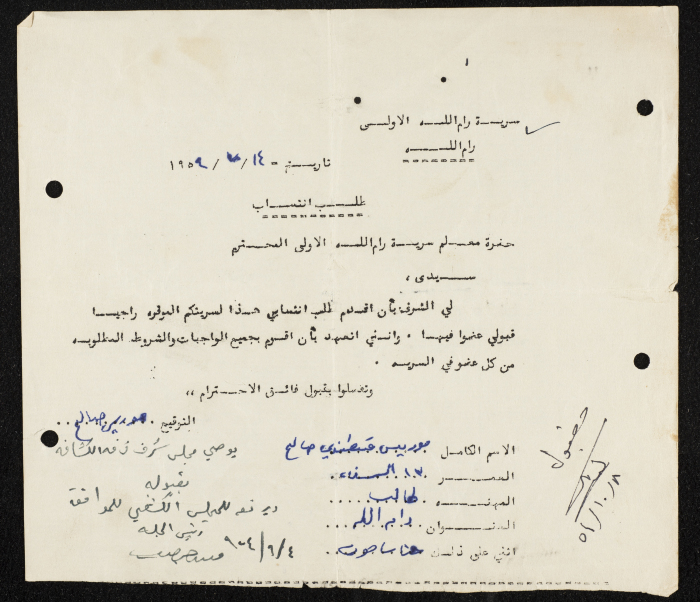 سرية رام الله الاولى
رام الله
تاريخ - ١٤ / ٧ / ١٩٥٩
طلب انتساب
حضرة معلم سرية رام الله الاولى المحترم
سيدي ،
لي الشرف بأن اقدم طلب انتسابي هذا لسريتكم الموقره راجيا
قبولي عضوا فيها . وانني اتعهد بأن اقوم بجميع الواجبات والشروط المطلوبه
من كل عضو في السريه .
وتفضلوا بقبول فائق الاحترام ،،
التوقيع . موريس صالح . .
الاسم الكامل موريس قسطندي صالح
العمر ١٧
المهنه طالب . . . . .
العنوان . رام الله . . .
اثني على ذلك حنا
يوصي مجلس شرف فرقة الكشافة
بقبوله
للمجلس الكشفي للموافقة
رئيس
مقبول